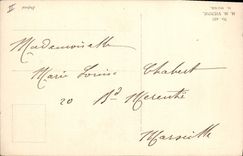 Mademoiselle
Marie Louise Chabert
20 Bd Merentié
Marseille